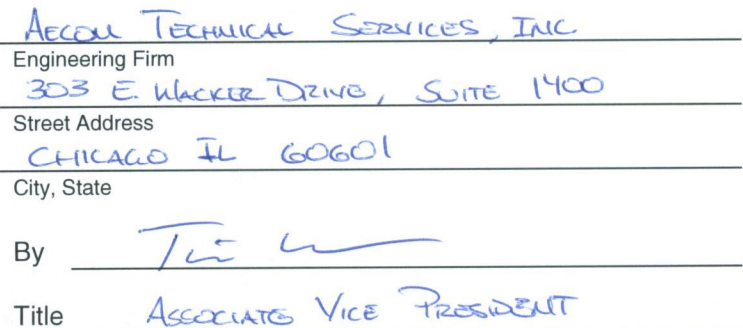 AECOM TECHNICAL SERVICES, INC.
Engineering Firm
303 E. WACKER DRIVE, SUITE 1400
Street Address
CHICAGO IL 60601
City, State
By
Title ASSOCIATE VICE PRESIDENT